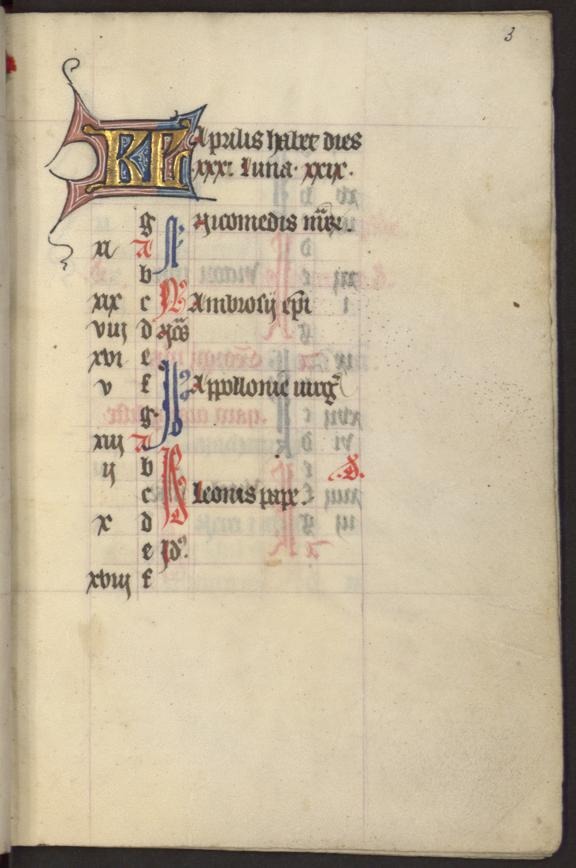 3
KL Aprilis habet dies
xxx. Luna. xxix.
g Nicomedis
xi A
b
xix c Ambrosij epi
viij d Nōs
xvi e
v f Appollonie uirg
g
xiij A
ij b
c Leonis pape.
x d
e Jd
xviij f